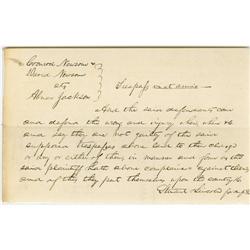 Conrood Newson &
David Newson
ats
Abner Jackson
Trespass
And the said defendants come
and defend the wrong and injury when where &c
and say they are not guilty of the said
supposed trespasses above laid to their charge
or any or either of them in manner and form as the
said plaintiff hath above complained against them
and of this they put themselves upon the country &c
Stuart Lincoln